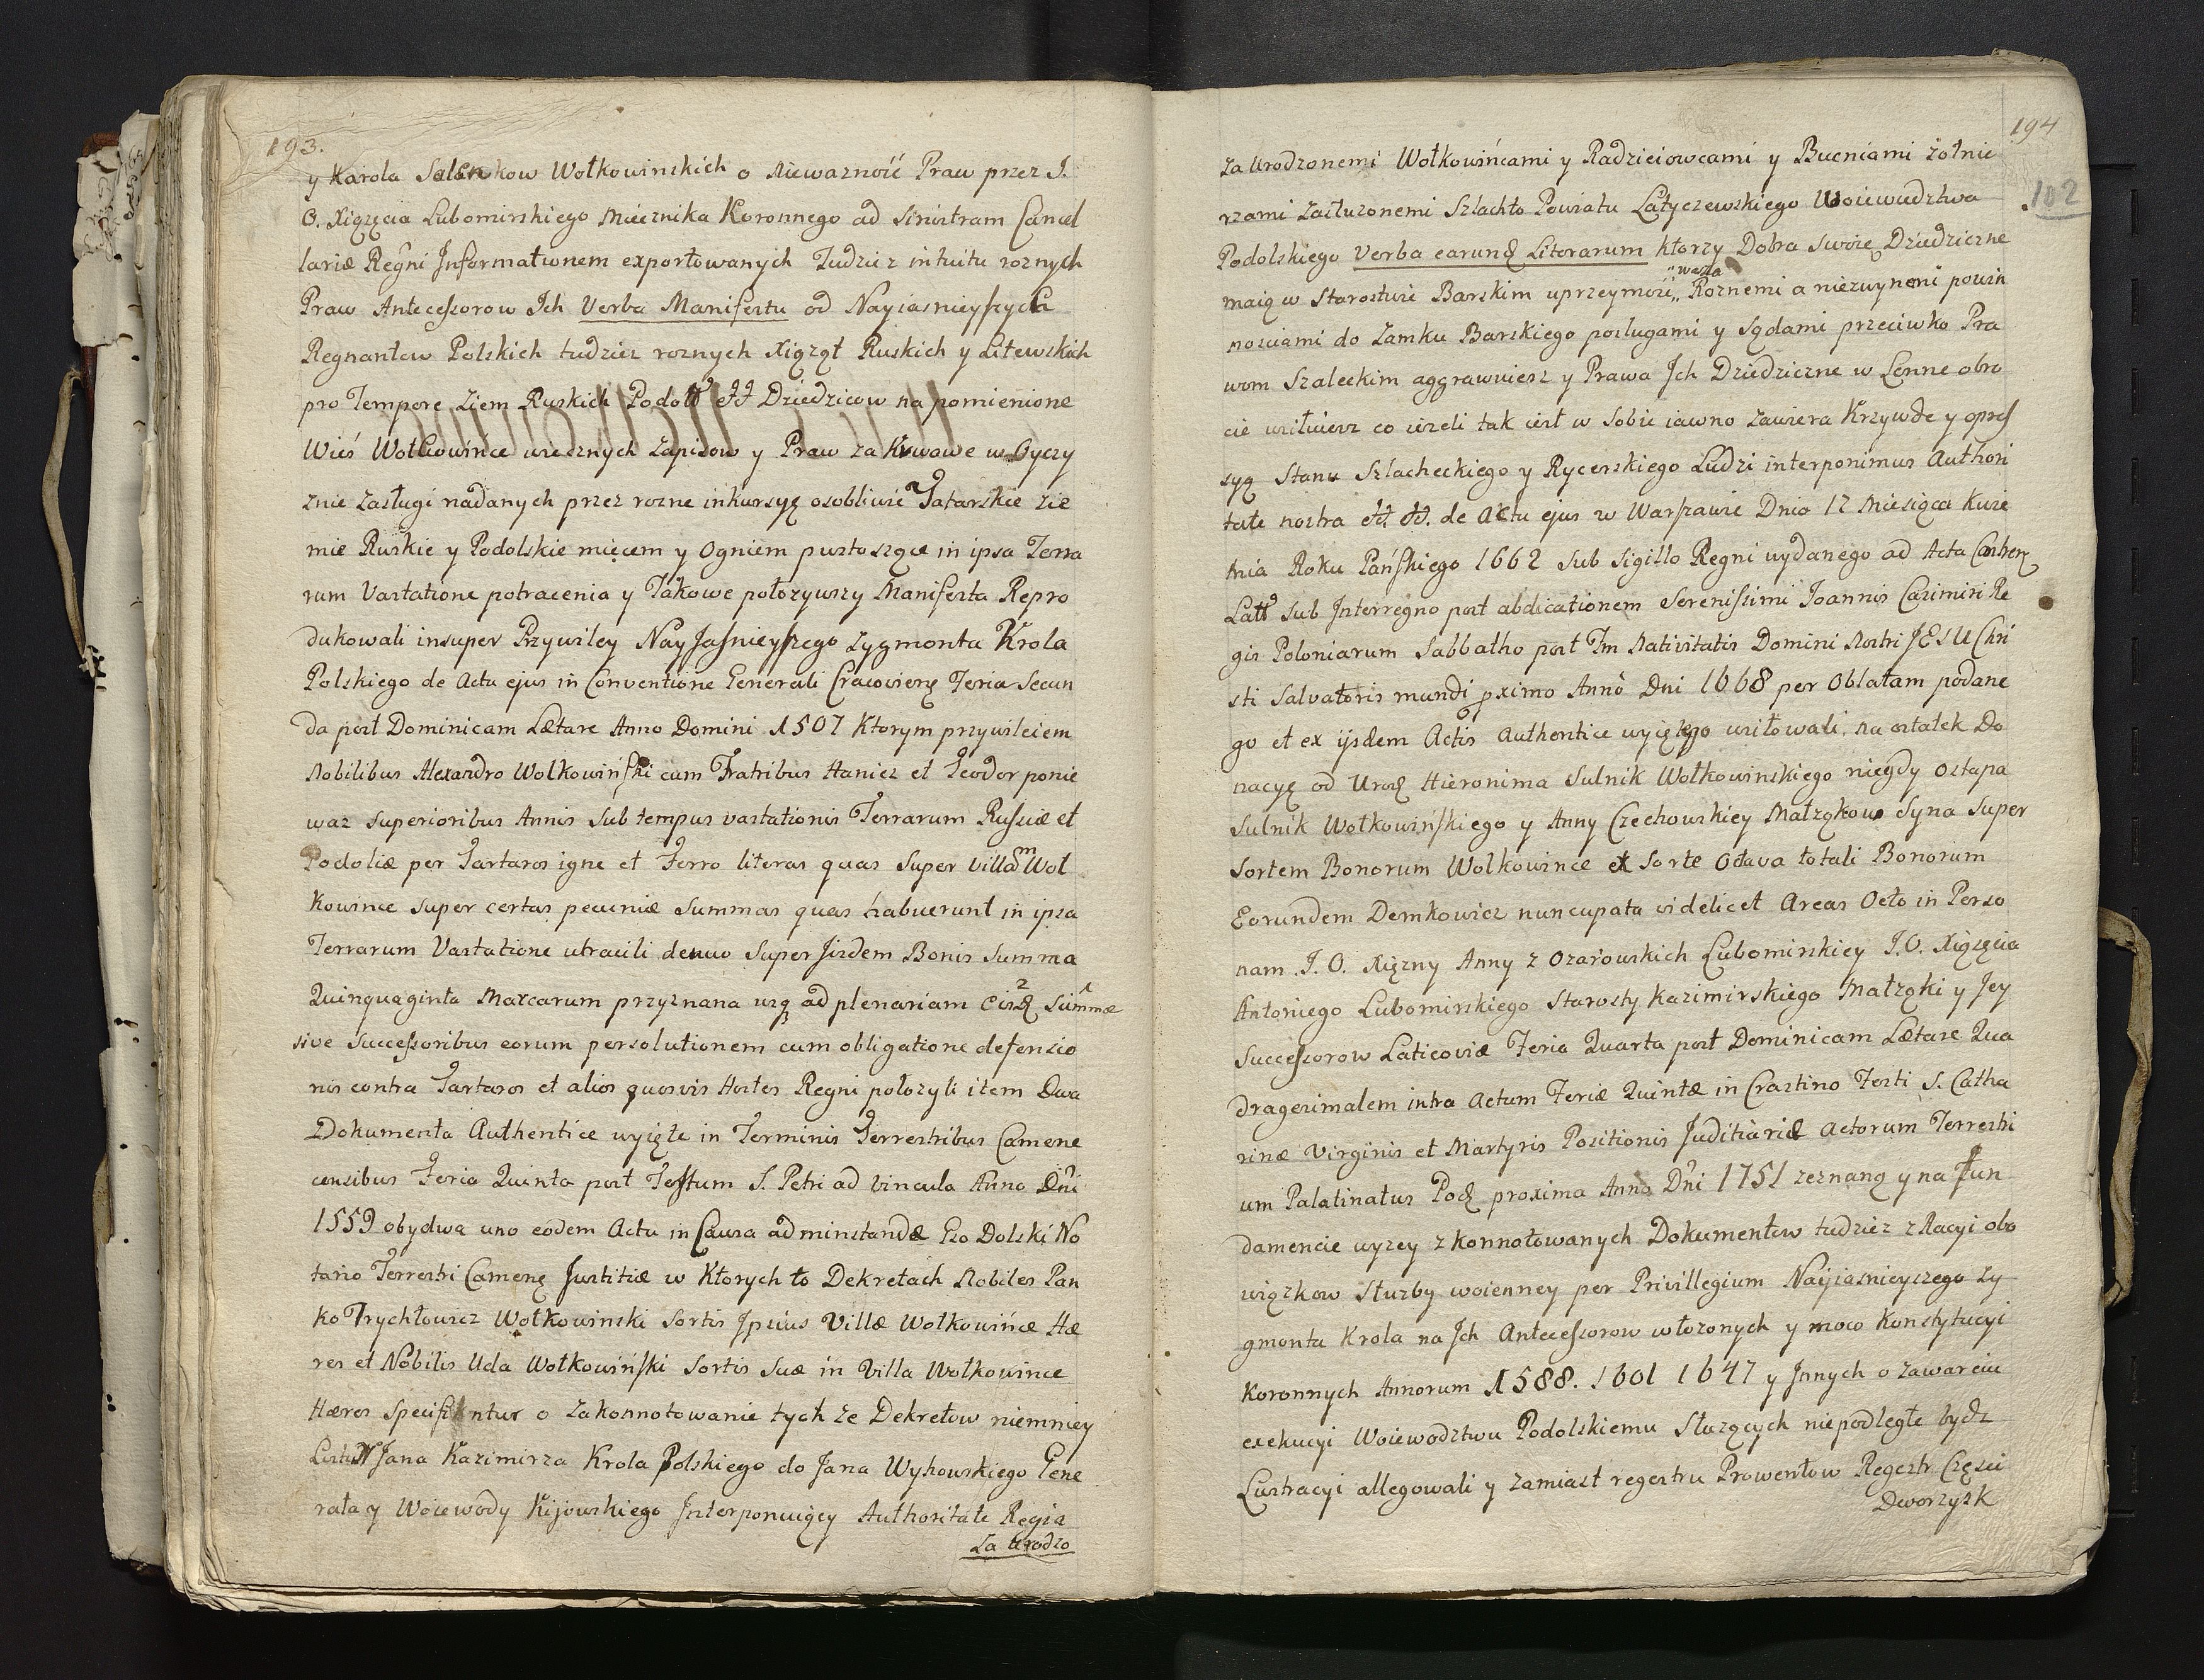 193.
y Karola Selenkow Wołkowinskich o Niewazność Praw przez J.
O. Xiązęcia Lubomirskiego Miecznika Koronnego ad Sinistram Cancel
lariæ Regni Informationem exportowanych Tudziez intuitu roznych
Praw Antecessorow Ich Verba Manifestu od Nayiasnieyszych
Regnantow Polskich tudziez roznych Xiąząt Ruskich y Litewskich
pro Tempore Ziem Ruskich Podolt Dziedzicow na pomienione
Wieś Wołkowińce wiecznych Zapisow y Praw za Krwawe w Oyczy
znie Zasługi nadanych przez rozne inkursyę osobliwie Tatarskie Zie
mie Ruskie y Podolskie mięcem y Ogniem pustoszące in ipsa Terra
rum Vastatione potracenia y Takowe połozywszy Manifesta Repro
dukowali insuper Przywiley NayJasnieyszego Zygmonta Krola
Polskiego de Actu ejus in Conventione Generali Cracovienę Feria Secun
da post Dominicam Lætare Anno Domini 1507 Ktorym przywileiem
Nobilibus Alexandro Wolkowiński cum Fratribus Haniez et Teodor ponie
waz Superioribus Annis Sub tempus vastationis Terrarum Russiæ et
Podoliæ per Tartaros igne et Ferro literas quas Super villam Woł
Kowince Super certas pecuniæ Summas quas habuerunt in ipsa
Terrarum Vastatione utracili denuo Super Jisdem Bonis Summa
Quinquaginta Marcarum przyznana usq ad plenariam Summæ
sive Successoribus eorum persolutionem cum obligatione defensio
nis contra Tartaros et alios quosvis Hostes Regni połozyli item Dwa
Dokumenta Authentice wyięte in Terminis Terrestribus Camene
censibus Feria Quinta post Festum S. Petri ad Vincula Anno Dni
1559 obydwa uno eodem Actu in Causa administandæ Eso Dolski No
tario Terrestri Camenę Justitiæ w Ktorych to Dekretach Nobiles Pan
Ko Trychłowicz Wołkowinski Sortis Ipsius Villæ Wołkowińce Hæ
res et Nobilis Uda Wołkowiński Sortis Suæ in Villa Wołkowince
Hæres Specifintur o Zakonnotowanie tych ze Dekretow niemniey
Listu Jana Kazimirza Krola Polskiego do Jana Wyhowskiego Gene
rała y Woiewody Kijowskiego Interponuiący Authoritate Regia
Za Urodzo
194
102
Za Urodzonemi Wołkowińcami y Radzieiowcami y Bucniami żołnie
rzami Zasłuzonemi Szlachto Powiatu Latyczewskiego Woiewudztwa
Podolskiego Verba earund Literarum ktorzy Dobra Swoie Dziedziczne
maią w Starostwie Barskim uprzeymość wasza Roznemi a niezwynemi powin
nosciami do Zamku Barskiego posługami y Sądami przeciwko Pra
wom Szaleckim aggrawuiesz y Prawa Ich Dziedziczne w Lenne obro
cie usiłuiesz co iezeli tak iest w Sobie iawno Zawiera Krzywde y opres
syą Stanu Szlacheckiego y Rycerskiego Ludzi interponimus Authori
tate nostra de Actu ejus w Warszawie Dnio 12 Miesiąca Kwie
tnia Roku Pańskiego 1662 Sub Sigillo Regni wydanego ad Acta Castren
Latt Sub Interregno post abdicationem Serenissimi Joannis Casimiri Re
gis Poloniarum Sabbatho post Fm Nativitatis Domini Nostri JESU Chri
sti Salvatoris mundi pximo Anno Dni 1668 per Oblatam podane
go et ex ijsdem Actis Authentice wyiętego usiłowali. na ostatek Do
nacyę od Urod Hieronima Sulnik Wołkowinskiego niegdy Ostapa
Sulnik Wołkowińskiego y Anny Czechowskiey Małząkow Syna Super
Sortem Bonorum Wolkowince ex Sorte Octava totali Bonorum
Eorundem Demkowicz nuncupata videlicet Areas Octo in Perso
nam J. O. Xiężny Anny z Ozarowskich Lubomirskiey J.O. Xiązęcia
Antoniego Lubomirskiego Starosty Kazimirskiego Małząki y Jey
Successorow Laticoviæ Feria Quarta post Dominicam Lætare Qua
dragesimalem intra Actum Feriæ Quintæ in Crastino Festi S. Catha
rinæ Virginis et Martyris Positionis Juditiariæ Actorum Terrestri
um Palatinatus Pod proxima Anno Dni 1751 zeznaną y na Fun
damencie wyzey zkonnotowanych Dokumentow tudziez z Racyi obo
wiązkow Słuzby woienney per Privillegium Nayiasnieyszego Zy
gmonta Krola na Ich Antecessorow włozonych y moco Konstytucyi
Koronnych Annorum 1588. 1601 1647 y Innych o Zawarciu
exekucyi Woiewodztwu Podolskiemu Słuzących niepodległe bydz
Lustracyi allegowali y Zamiast regestru Prowentow Regestr Częsci
Dworzysk